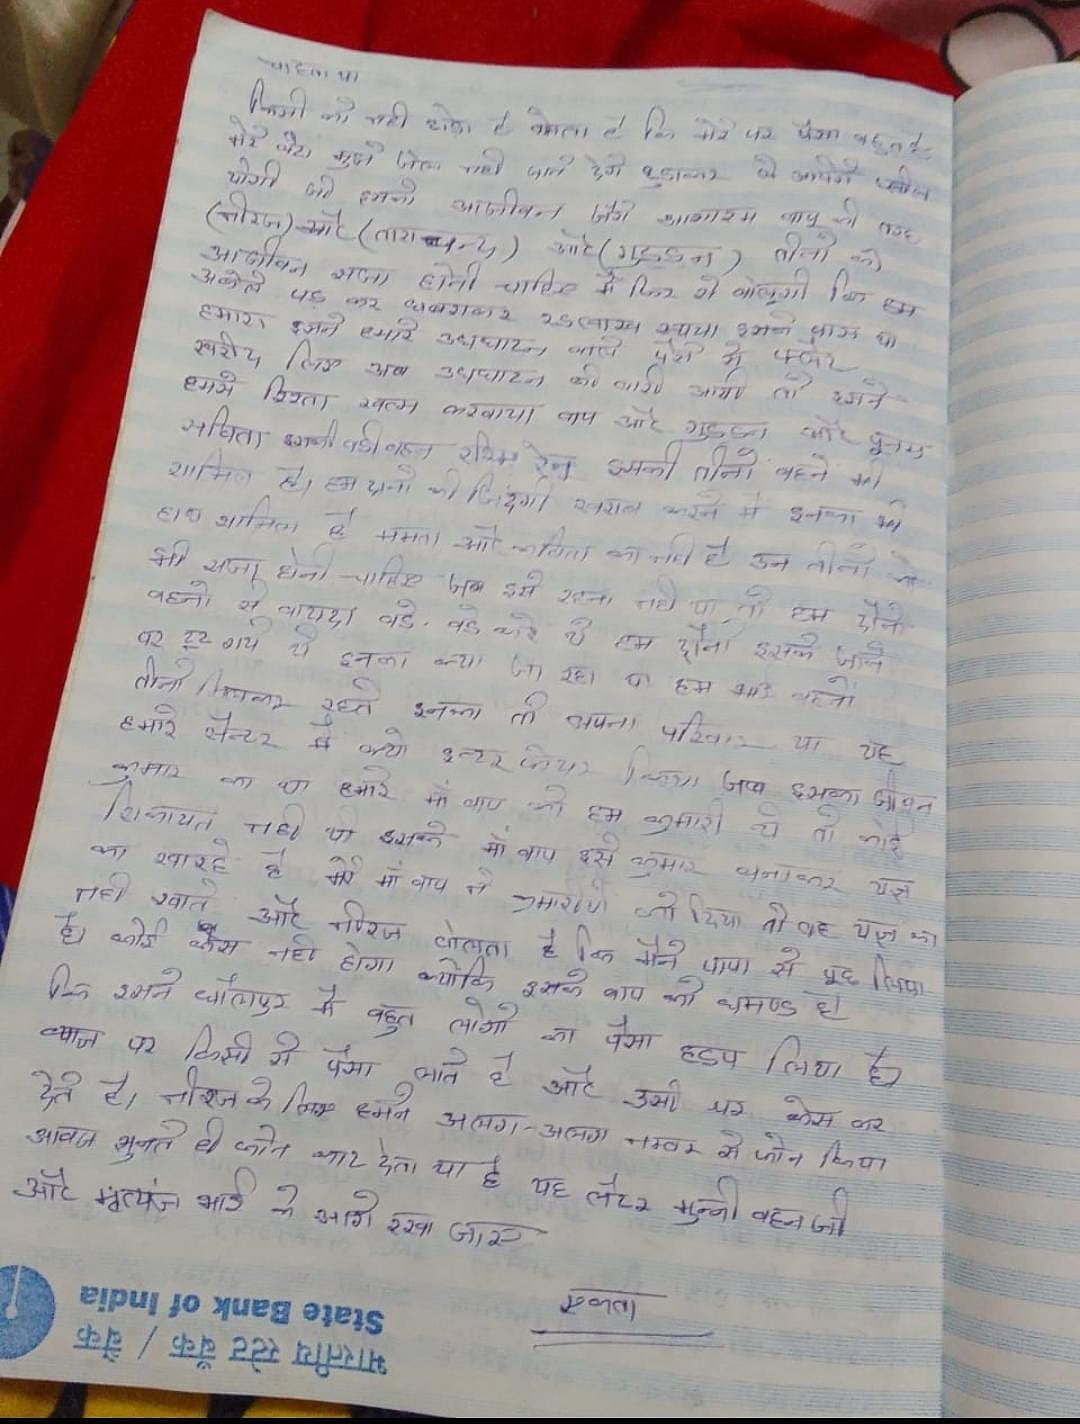 चाहता था
किसी को नही छोड़ा है बोलता है कि मेरे पर पैसा बहुत है
मेरे बेटा मुझे जेल नही जाने देगे छुड़ाकर ले आयेगे
योगी जी इनको आजीवन जैसे आशाराम बापू की तरह
(नीरज) और (ताराचन्द) और (गुड्डन) तीनो को
आजीवन सजा होनी चाहिए मै फिर से बोलूगी कि हम
अकेले पड़ कर रुपया इसने
हमारा इसने हमारे उधघाटन वाले पैसे से प्लाट
खरीद लिए जब उधघाटन की बारी आयी तो इसने
हमसे रिश्ता खत्म करवाया बाप और गुड्डन और पूनम
इसकी बडी बहन इसकी तीनो बहने भी
शामिल है। हम दोनो की जिंदगी खराब करने मे इनका भी
हाथ शामिल है ममता और कविता का नही है उन तीनो को
भी सजा होनी चाहिए जब इसे रहना नही था तो हम दोनो
बहनो से वायदा बडे-बडे करे थे हम दोनो इसके जाने
पर टूट गये थे इनका क्या जा रहा था हम भाई बहनो
तीनो मिलकर रहते इनका तो अपना परिवार था यह
हमारे सेन्टर मे क्यो किया जब इसका जीवन
कुमार का था हमारे माँ बाप को हम कुमारी थे तो कोई
शिकायत नही थी इसके माँ बाप इसे कुमार बनाकर यज्ञ
का खा रहे है मेरे माँ बाप ने कुमारीयो को दिया तो वह यज्ञ का
नही खाते और नीरज बोलता है कि मैने पापा से पूछ लिया
है। कोई केस नही होगा क्योकि इसके बाप को घमण्ड है
कि इसने धौलपुर मे बहुत लोगो का पैसा हडप लिया है।
ब्याज पर किसी से पैसा लाते है और उसी पर केस कर
देते है। नीरज के लिए हमने अलग-अलग नम्बर से फोन किया
आवाज सुनते ही फोन काट देता था है यह लेटर मुन्नी बहन जी
और मृत्युंजय भाई के आगे रखा जाए
एकता
भारतीय स्टेट बैंक / बैंक
State Bank of India